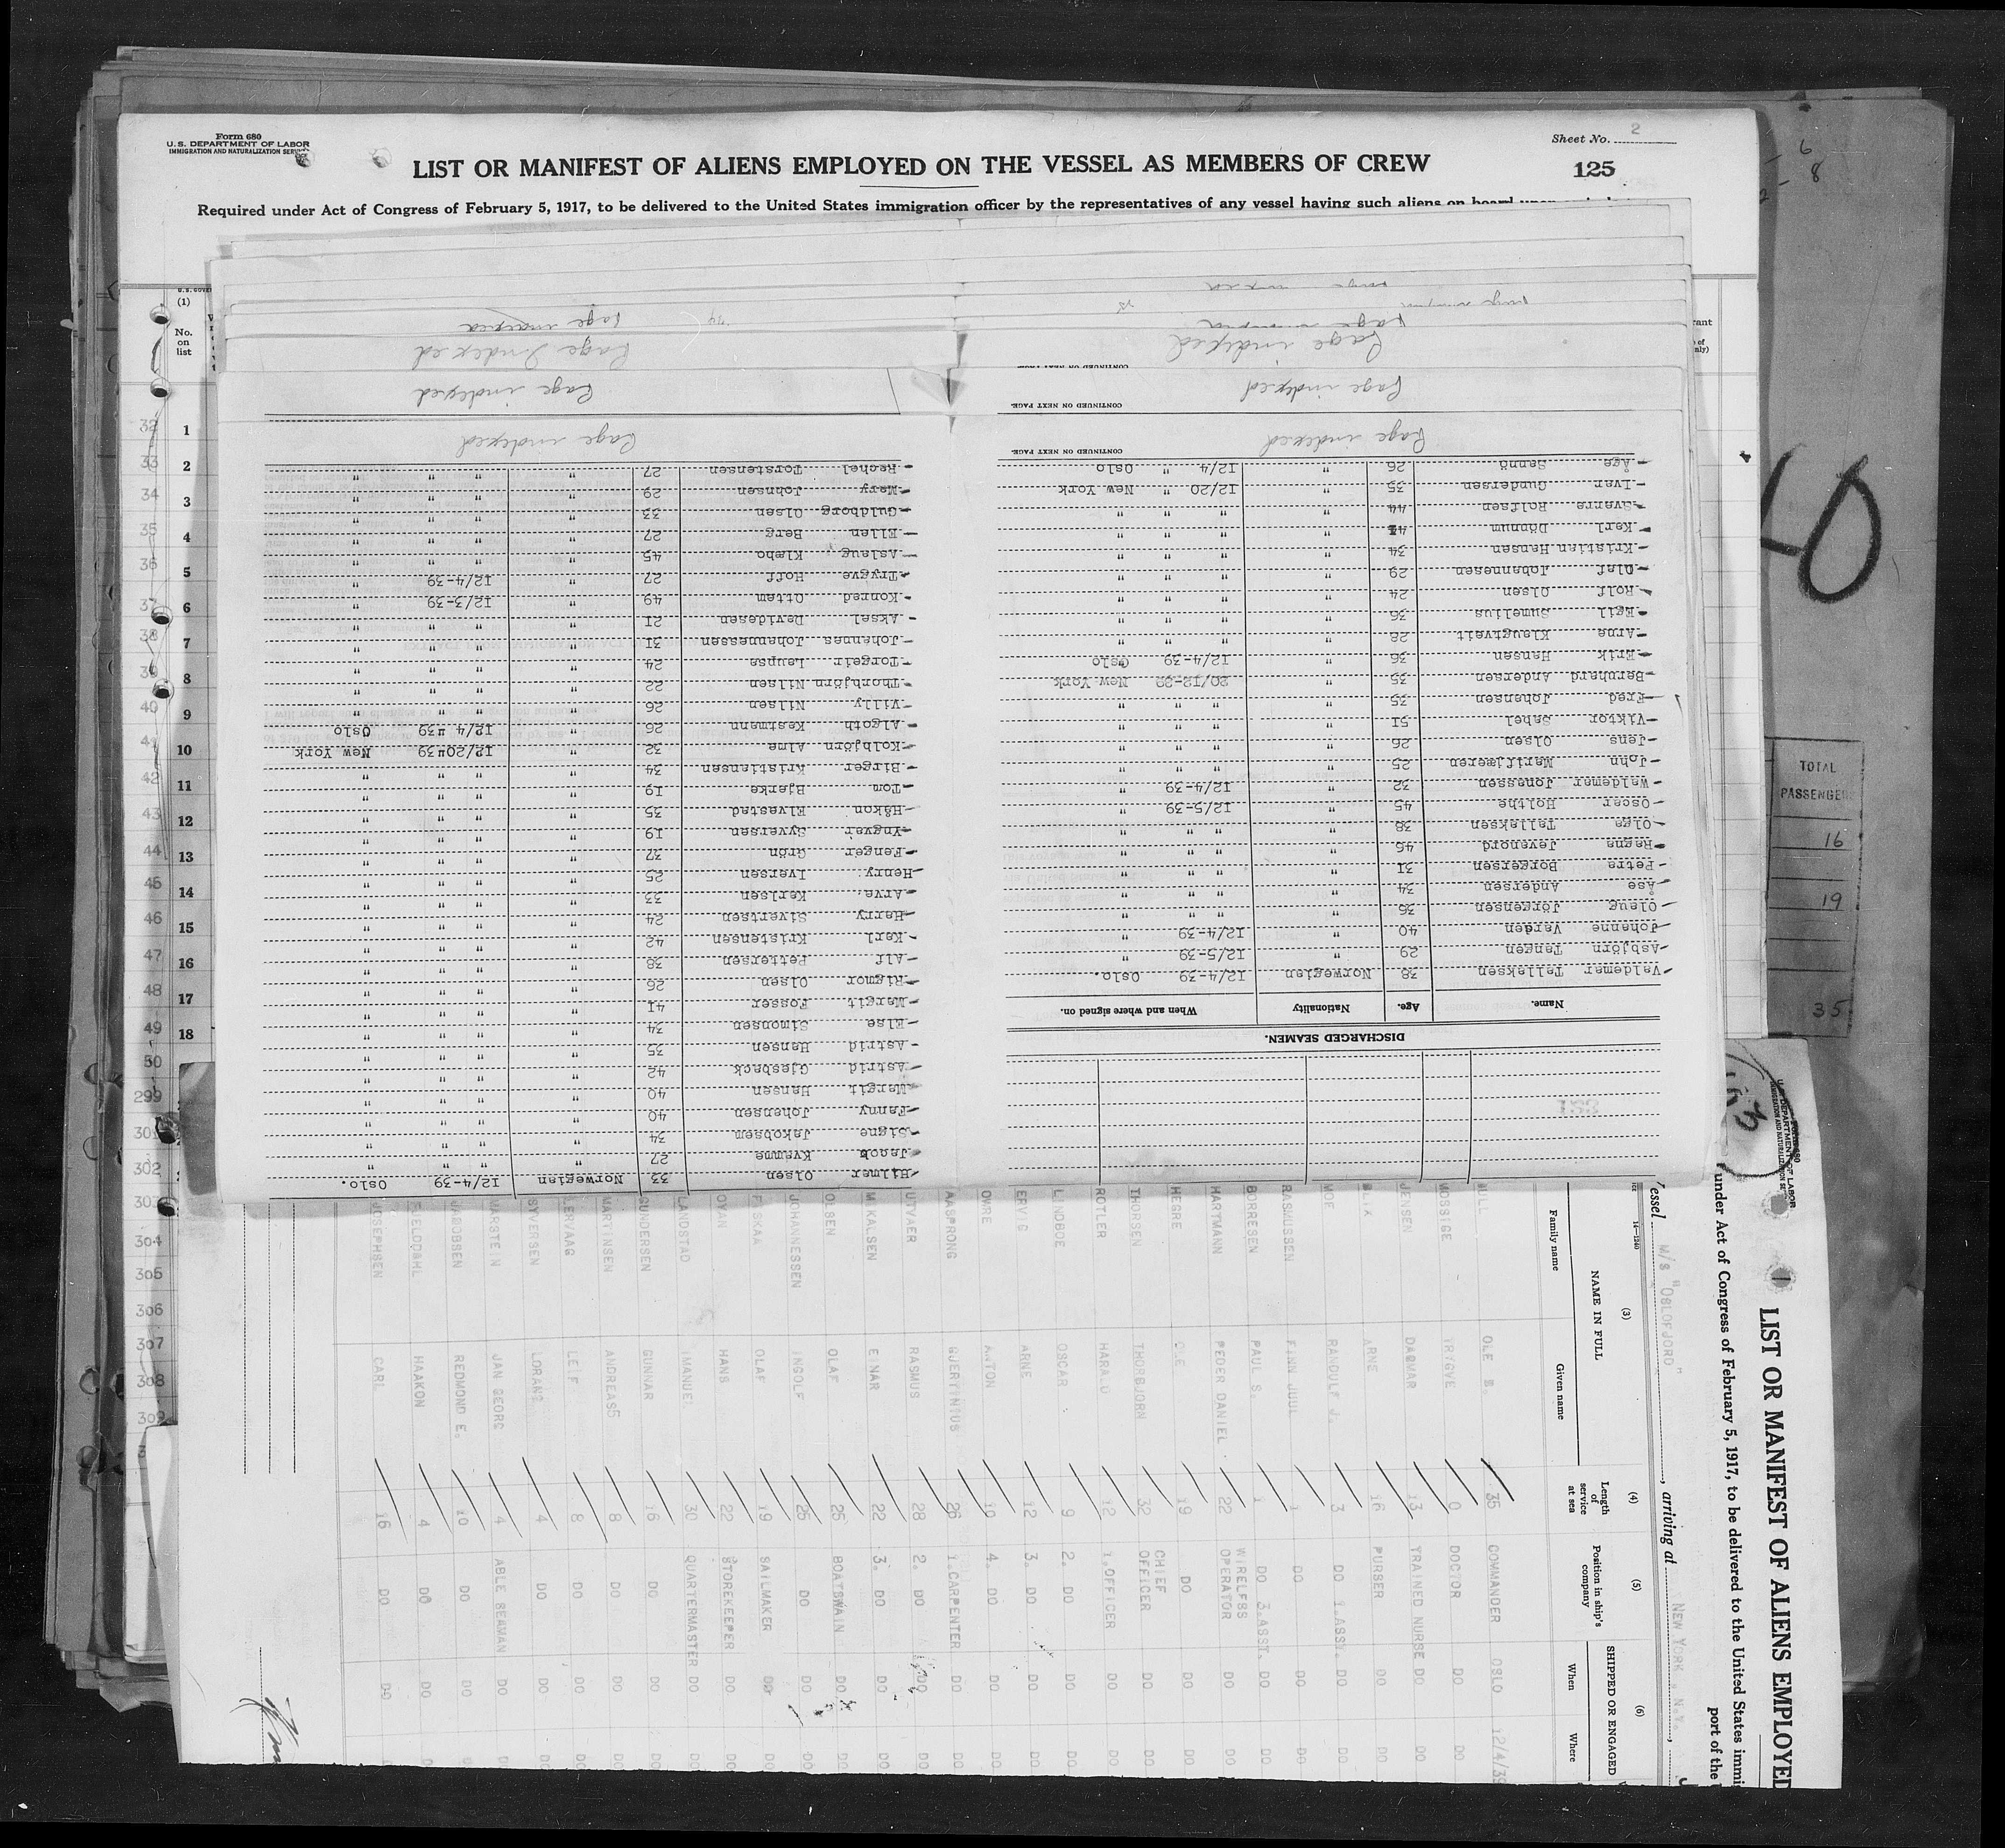 Form 680
U.S. DEPARTMENT OF LABOR
IMMIGRATION AND NATURALIZATION SERVICE
Sheet No. 2
125
LIST OR MANIFEST OF ALIENS EMPLOYED ON THE VESSEL AS MEMBERS OF CREW
Required under Act of Congress of February 5, 1917, to be delivered to the United States immigration officer by the representatives of any vessel having such aliens on board upon
(1)
No. on list
1
2
3
4
5
6
7
8
9
10
11
12
13
14
15
16
17
18
TOTAL
PASSENGERS
16
19
35
DISCHARGED SEAMEN.
Name. Age. Nationality When and where signed on.
Valdemar Tellefsen 38 Norwegian 12/4-39 Oslo.
Asbjörn Tangen 29 " 12/5-39 "
Johanne Varden 40 " 12/4-39 "
Olaug Jörgensen 36 " " " "
Åse Andersen 34 " " " "
Petra Borgersen 31 " " " "
Ragna Jevenord 46 " " " "
Olga Tellefsen 38 " " " "
Oscar Holthe 45 " 12/5-39 "
Waldemar Jonassen 32 " 12/4-39 "
John Marifjæren 25 " " " "
Jens Olsen 26 " " " "
Viktor Sabel 51 " " " "
Fred Johansen 35 " " " "
Bernhard Andersen 35 " 20/12-39 New York
Erik Hansen 36 " 12/4-39 Oslo
Arne Klaugtveit 28 " " " "
Egil Sumelius 36 " " " "
Rolf Olsen 24 " " " "
Olaf Johannesen 29 " " " "
Kristian Hansen 34 " " " "
Karl Dönnum " " " "
Sverre Rolfsen 44 " " " "
Iver Gundersen 35 " 12/20 " New York
Åge Sannö 26 " 12/4 " Oslo
CONTINUED ON NEXT PAGE.
Page indexed
CONTINUED ON NEXT PAGE.
Page indexed
Page indexed
Hilmar Olsen 33 Norwegian 12/4-39 Oslo.
Jacob Kvamme 27 " " " "
Signe Jakobsen 34 " " " "
Fanny Johansen 40 " " " "
Margit Hansen 40 " " " "
Astrid Gjesbeck 42 " " " "
Astrid Hansen 35 " " " "
Else Simonsen 34 " " " "
Margit Fosser 41 " " " "
Rigmor Olsen 26 " " " "
Alf Pettersen 38 " " " "
Karl Kristensen 42 " " " "
Harry Sivertsen 24 " " " "
Arve Karlsen 33 " " " "
Henry Iversen 25 " " " "
Fenger Grön 37 " " " "
Yngvar Syversen 19 " " " "
Håkon Elvestad 35 " " " "
Tom Bjerke 19 " " " "
Birger Kristiansen 34 " " " "
Kolbjörn Alme 32 " 12/20"39 New York
Algoth Kastmann 26 " 12/4 "39 Oslo
Villy Nilsen 26 " " " "
Thorbjörn Nilsen 22 " " " "
Torgeir Laupsa 24 " " " "
Johannes Johannessen 31 " " " "
Aksel Davidsen 21 " " " "
Konrad Ottem 49 " 12/3-39 "
Trygve Hoff 27 " 12/4-39 "
Aslaug Klæbo 45 " " " "
Ellen Berg 27 " " " "
Guldborg Olsen 33 " " " "
Mary Johnsen 29 " " " "
Rachel Torstensen 27 " " " "
Page indexed
Page indexed
Page Indexed
Page indexed
U.S. DEPARTMENT OF LABOR
IMMIGRATION AND NATURALIZATION
LIST OR MANIFEST OF ALIENS EMPLOYED
under Act of Congress of February 5, 1917, to be delivered to the United States immi
port of the
essel M/S "OSLOFJORD", arriving at NEW YORK. N.Y.
(3) NAME IN FULL
Family name Given name
(4) Length of service at sea
(5) Position in ship's company
(6) SHIPPED OR ENGAGED
When Where
BULL OLE B. 35 COMMANDER OSLO 12/4/39
MOSSIGE TRYGVE 0 DOCTOR DO DO
JENSEN DAGMAR 13 TRAINED NURSE DO DO
BLIX ARNE 16 PURSER DO DO
MOE RANDULF J. 3 DO 1.ASST. DO DO
RASMUSSEN FINN JUUL 1 DO DO DO
BORRESEN PAUL S. 1 DO 3.ASST. DO DO
HARTMANN PEDER DANIEL 22 WIRELESS OPERATOR DO DO
HEGRE OLE 19 DO DO DO
THORSEN THORBJORN 32 CHIEF OFFICER DO DO
ROTLER HARALD 12 1.OFFICER DO DO
LINDBOE OSCAR 9 2. DO DO DO
ERVIG ARNE 12 3. DO DO DO
OWRE ANTON 10 4. DO DO DO
AASPRONG QUERTINIUS 26 1.CARPENTER DO DO
UTVAER RASMUS 28 2. DO DO DO
MIKALSEN EINAR 22 3. DO DO DO
OLSEN OLAF 25 BOATSWAIN DO DO
JOHANNESSEN INGOLF 25 DO DO DO
FISKAA OLAF 19 SAILMAKER DO DO
OYAN HANS 22 STOREKEEPER DO DO
LANDSTAD IMANUEL 30 QUARTERMASTER DO DO
GUNDERSEN GUNNAR 16 DO DO DO
MARTINSEN ANDREAS 8 DO DO DO
LERVAAG LEIF 8 DO DO DO
SYVERSEN LORANG 4 DO DO DO
MARSTEIN JAN GEORG 4 ABLE SEAMAN DO DO
JACOBSEN REDMOND E. 10 DO DO DO
FJELDDAHL HAAKON 4 DO DO DO
JOSEPHSEN CARL 16 DO DO D
32
33
34
35
36
37
38
39
40
41
42
43
44
45
46
47
48
49
50
299
301
302
303
304
305
306
307
308
309